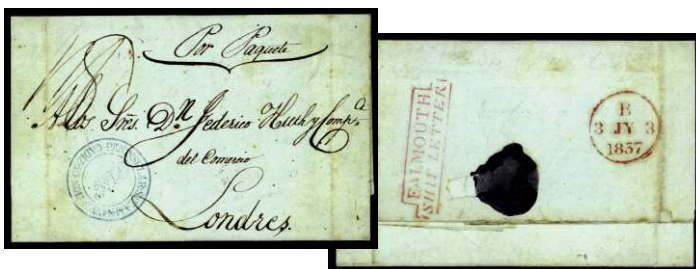 Por Paquete
A los Sres. Dn. Federico Huth y Compa.
del Comercio
Londres.
FALMOUTH
SHIP LETTER
B
3 JY 3
1837